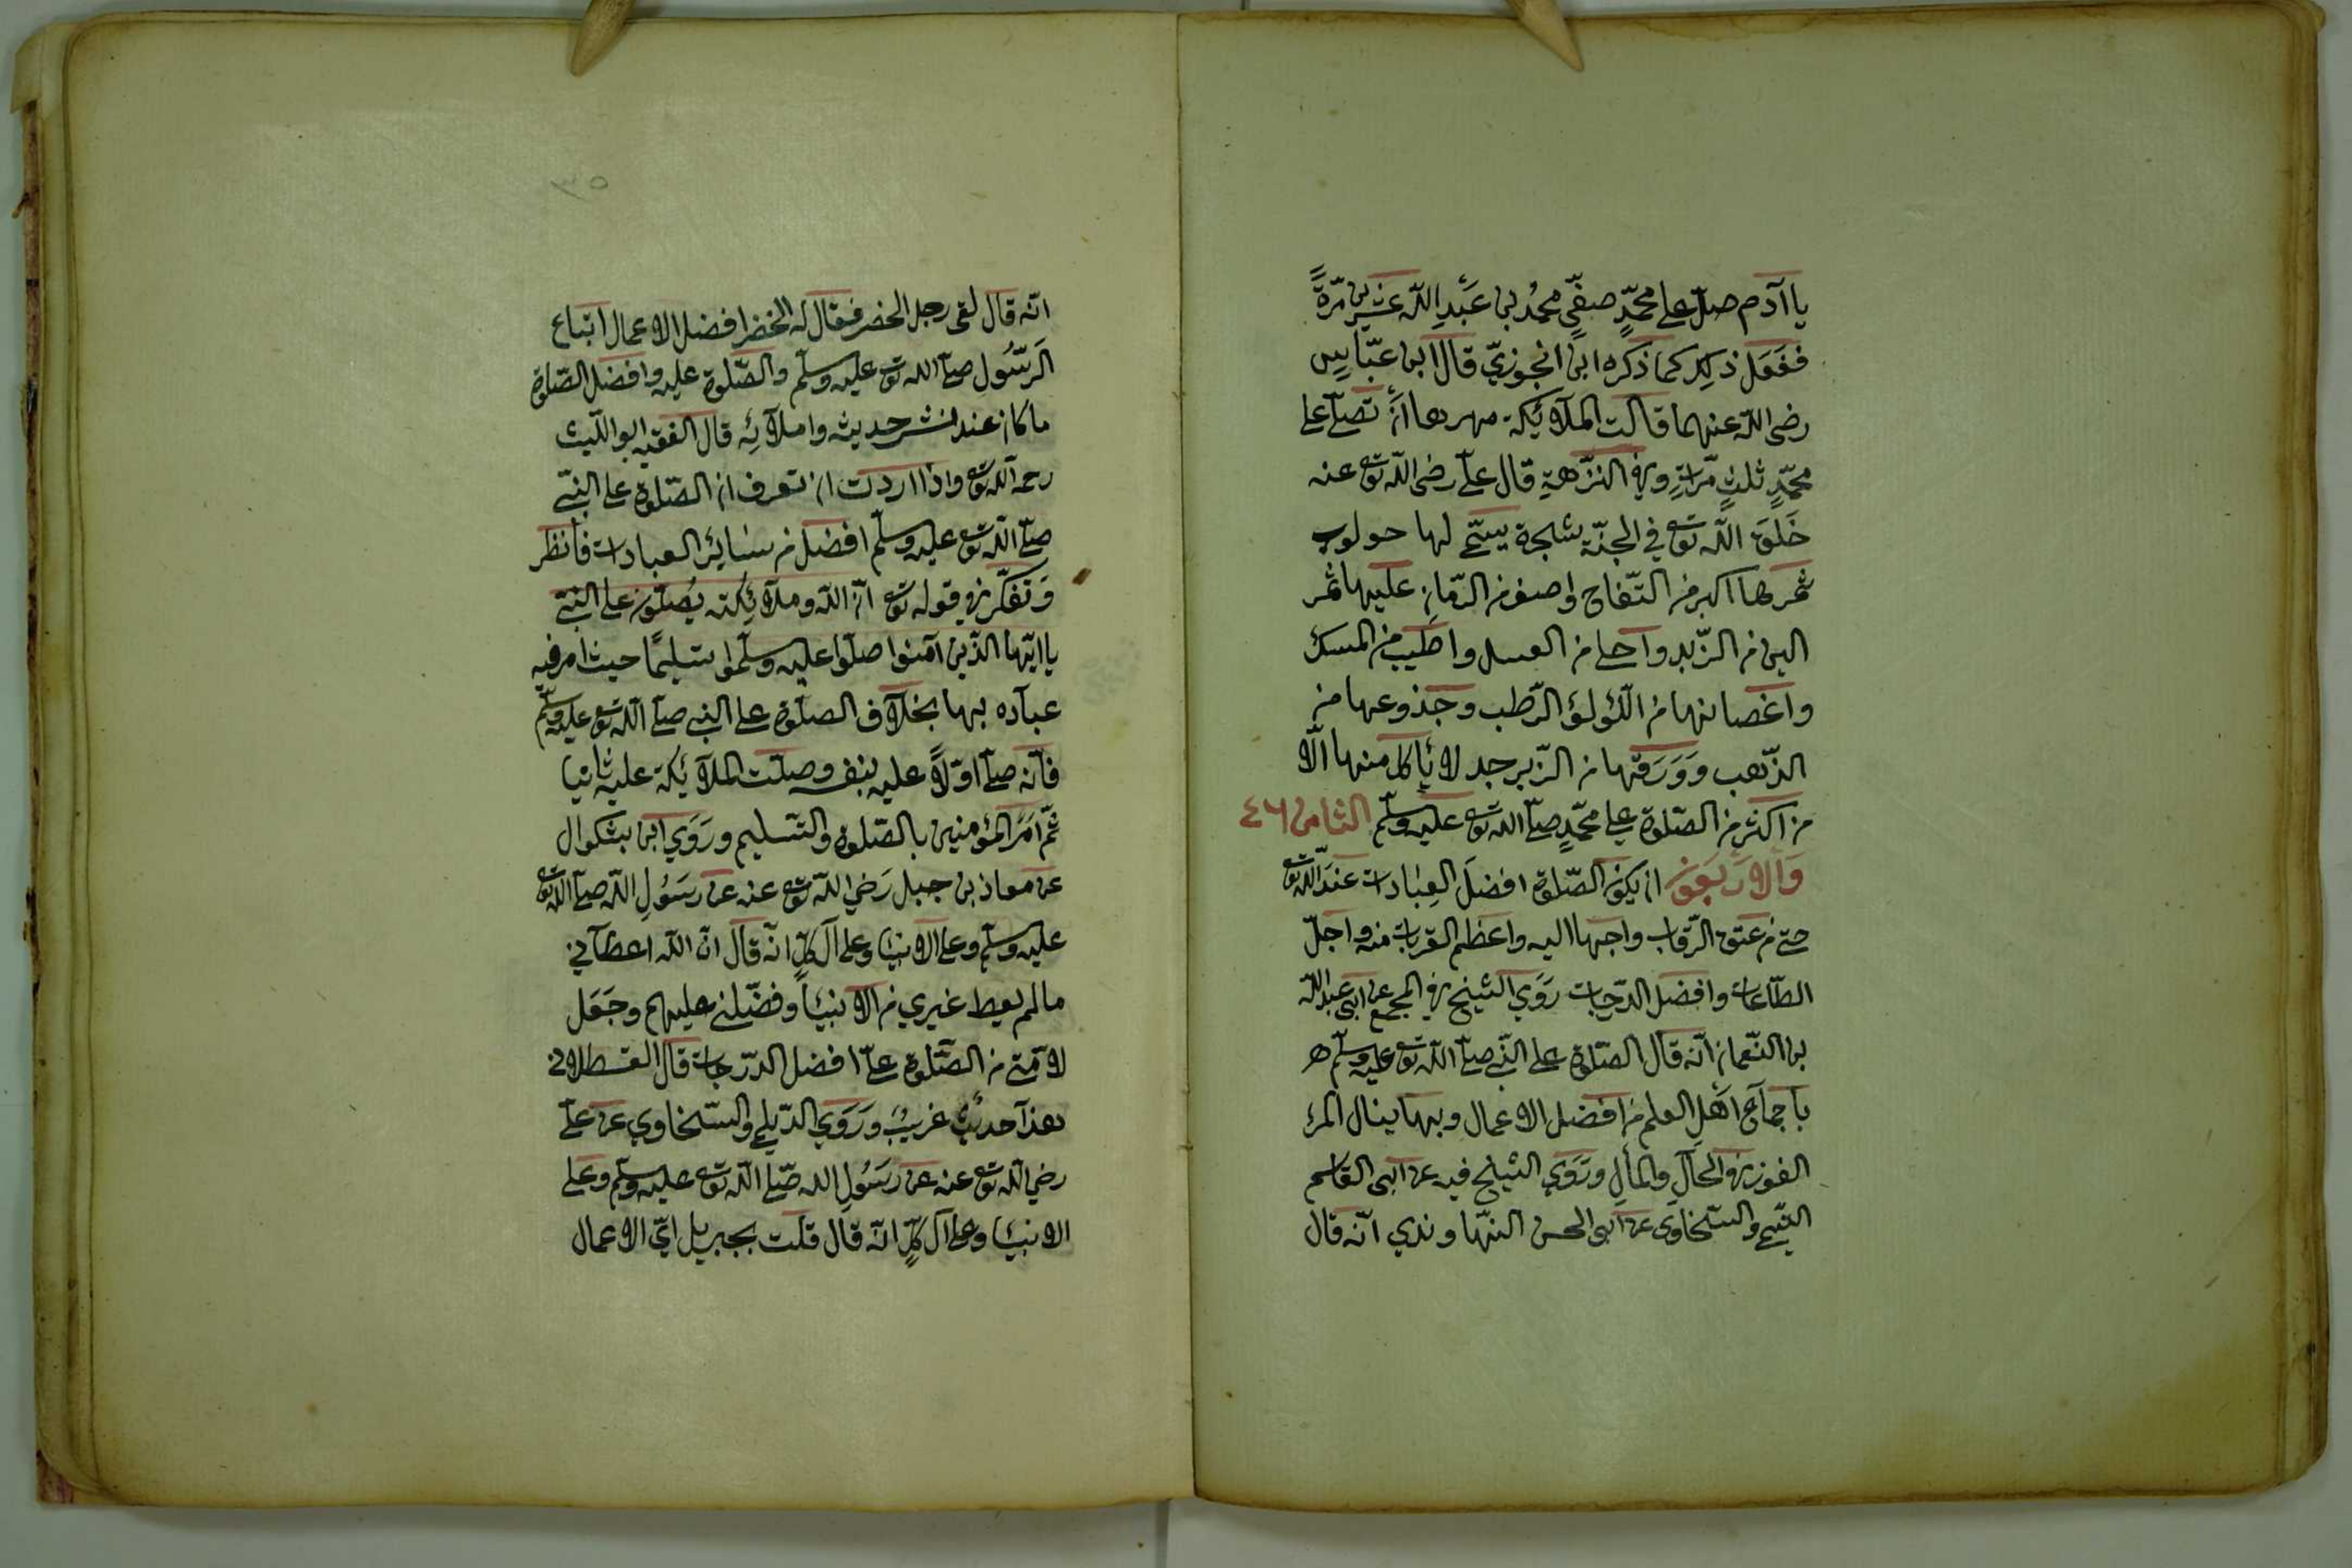 يا آدم صلّ على محمّدٍ صفيّ محمّد بن عَبْدِ اللّه عشرين مرّةً
ففَعَل ذلك كما ذكره ابن الجوزيّ قال ابن عبّاسٍ
رضى اللّه عنهما قالت الملآئكة مهرها أنْ تصلّى على
محمّدٍ ثلث مرّاتٍ وفى النّزهة قال علىّ رضى اللّه تع عنه
خَلَقَ اللّه تع في الجنّة شجرة يسمّى لها حولوب
ثمرها اكبر من التّفاح واصغر من الرّمان عليها ثمر
الين من الزّبد واحلى من العسل واطيب من المسك
واغصانها من اللّؤلؤ الرّطب وجذوعها من
الذّهب ووَرَقها من الزّبرجد لا يأكل منها الّا
من اكثر من الصّلوة على محمّدٍ صلّى اللّه تع عليه وسلّم الثامن ٤٦
وَالاربَعون ان يكون الصّلوة افضلَ العِبَادات عندَ اللّه تع
حتّى من عتق الرّقاب واحبّها اليه واعظم القربات منه واجلّ
الطّاعات وافضل الدّرجات رَوَى الشّيخ فى المجمع عن ابى عبد اللّه
بن النّعمان انّه قال الصّلوة على النّبى صلّى اللّه تع عليه وسلّم هى
باجماع اهل العلم من افضل الاعمال وبها ينال المرء
الفوز فى الحال والمآل ورَوَى الشّيخ فيه عن ابى القاسم
التّيمى والسّخاوى عن ابى الحسن النّهاوندي انّه قال
٣٥
انّه قال لقى رجل الخضر فقال له الخضر افضل الاعمال اتباع
الرّسُول صلّى اللّه تع عليه وسلّم والصّلوة عليه وافضل الصّلوة
ما كان عند نشر حديثه واملآئه قال الفقيه ابو اللّيث
رحمه اللّه تع واذا اردت ان تعرف ان الصّلوة على النّبى
صلّى اللّه تع عليه وسلّم افضل من سَايرِ العبادات فانظر
وَتَفكّر فى قوله تع انّ اللّه وملآئكته يُصلّون على النّبى
يا ايّها الذّين آمنوا صلّوا عليه وسلّموا تسليمًا حيث امر فيه
عباده بها بخلآف الصلوة على النبى صلّى اللّه تع عليه وسلّم
فانّه صلّى اوّلاً عليه بنفسه وصلّت الملآئكة عليه ثانيا
ثمّ امَرَ المؤمنين بالصّلوة والتّسليم ورَوَى ابن بشكوال
عن معاذ بن جبل رَضي اللّه تع عنه عن رسَولِ اللّه صلّى اللّه تع
عليه وسلّم وعلى الانبيَا وعلى آل كلٍّ انّه قال انّ اللّه اعطآني
ما لم يعط غيري من الانبيَا وفضّلنى عليهم وجَعَل
لامّتى من الصّلوة علىّ افضل الدّرجات قال القسطلانى
هذا حديثٌ غريبٌ ورَوَي الدّيلمى والسّخاوي عن علىّ
رضي اللّه تع عنه عن رسَولِ اللّه صلّى اللّه تع عليه وسلّم وعلى
الانبيَا وعلى آل كلٍّ انّه قال قلت بجبريل ايّ الاعمال